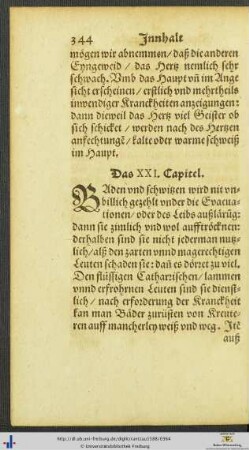 344 Jnnhalt
mögen wir abnemmen/ daß die anderen
Eyngeweid / das Hertz nemlich sehr
schwach. Vmb das Haupt vñ im Ange
sicht erscheinen / erstlich und mehrtheils
innwendiger Kranckheiten anzeigungen:
dann dieweil das Hertz viel Geister ob
sich schicket / werden nach des Hertzen
anfechtungē/ kalte oder warme schweiß
im Haupt.
Das XXI. Capitel.
BAden vnd schwitzen wird nit vn-
billich gezehlt vnder die Evacua-
tionen/ oder des Leibs außlärüg:
dann sie zimlich vnd wol aufftröcknen:
derhalben sind sie nicht jederman nutz-
lich/ alß den zarten vnnd magerechtigen
Leuten schaden sie: dañ es dörret zu viel.
Den flüssigen Catharrischen/ lammen
vnnd erfrohrnen Leuten sind sie dienst-
lich/ nach erforderung der Kranckheit
kan man Bäder zurüsten von Kreute-
ren auff mancherley weiß vnd weg. Jtē
auß
http://dl.ub.uni-freiburg.de/diglit/rantzau1588/0364
© Universitätsbibliothek Freiburg